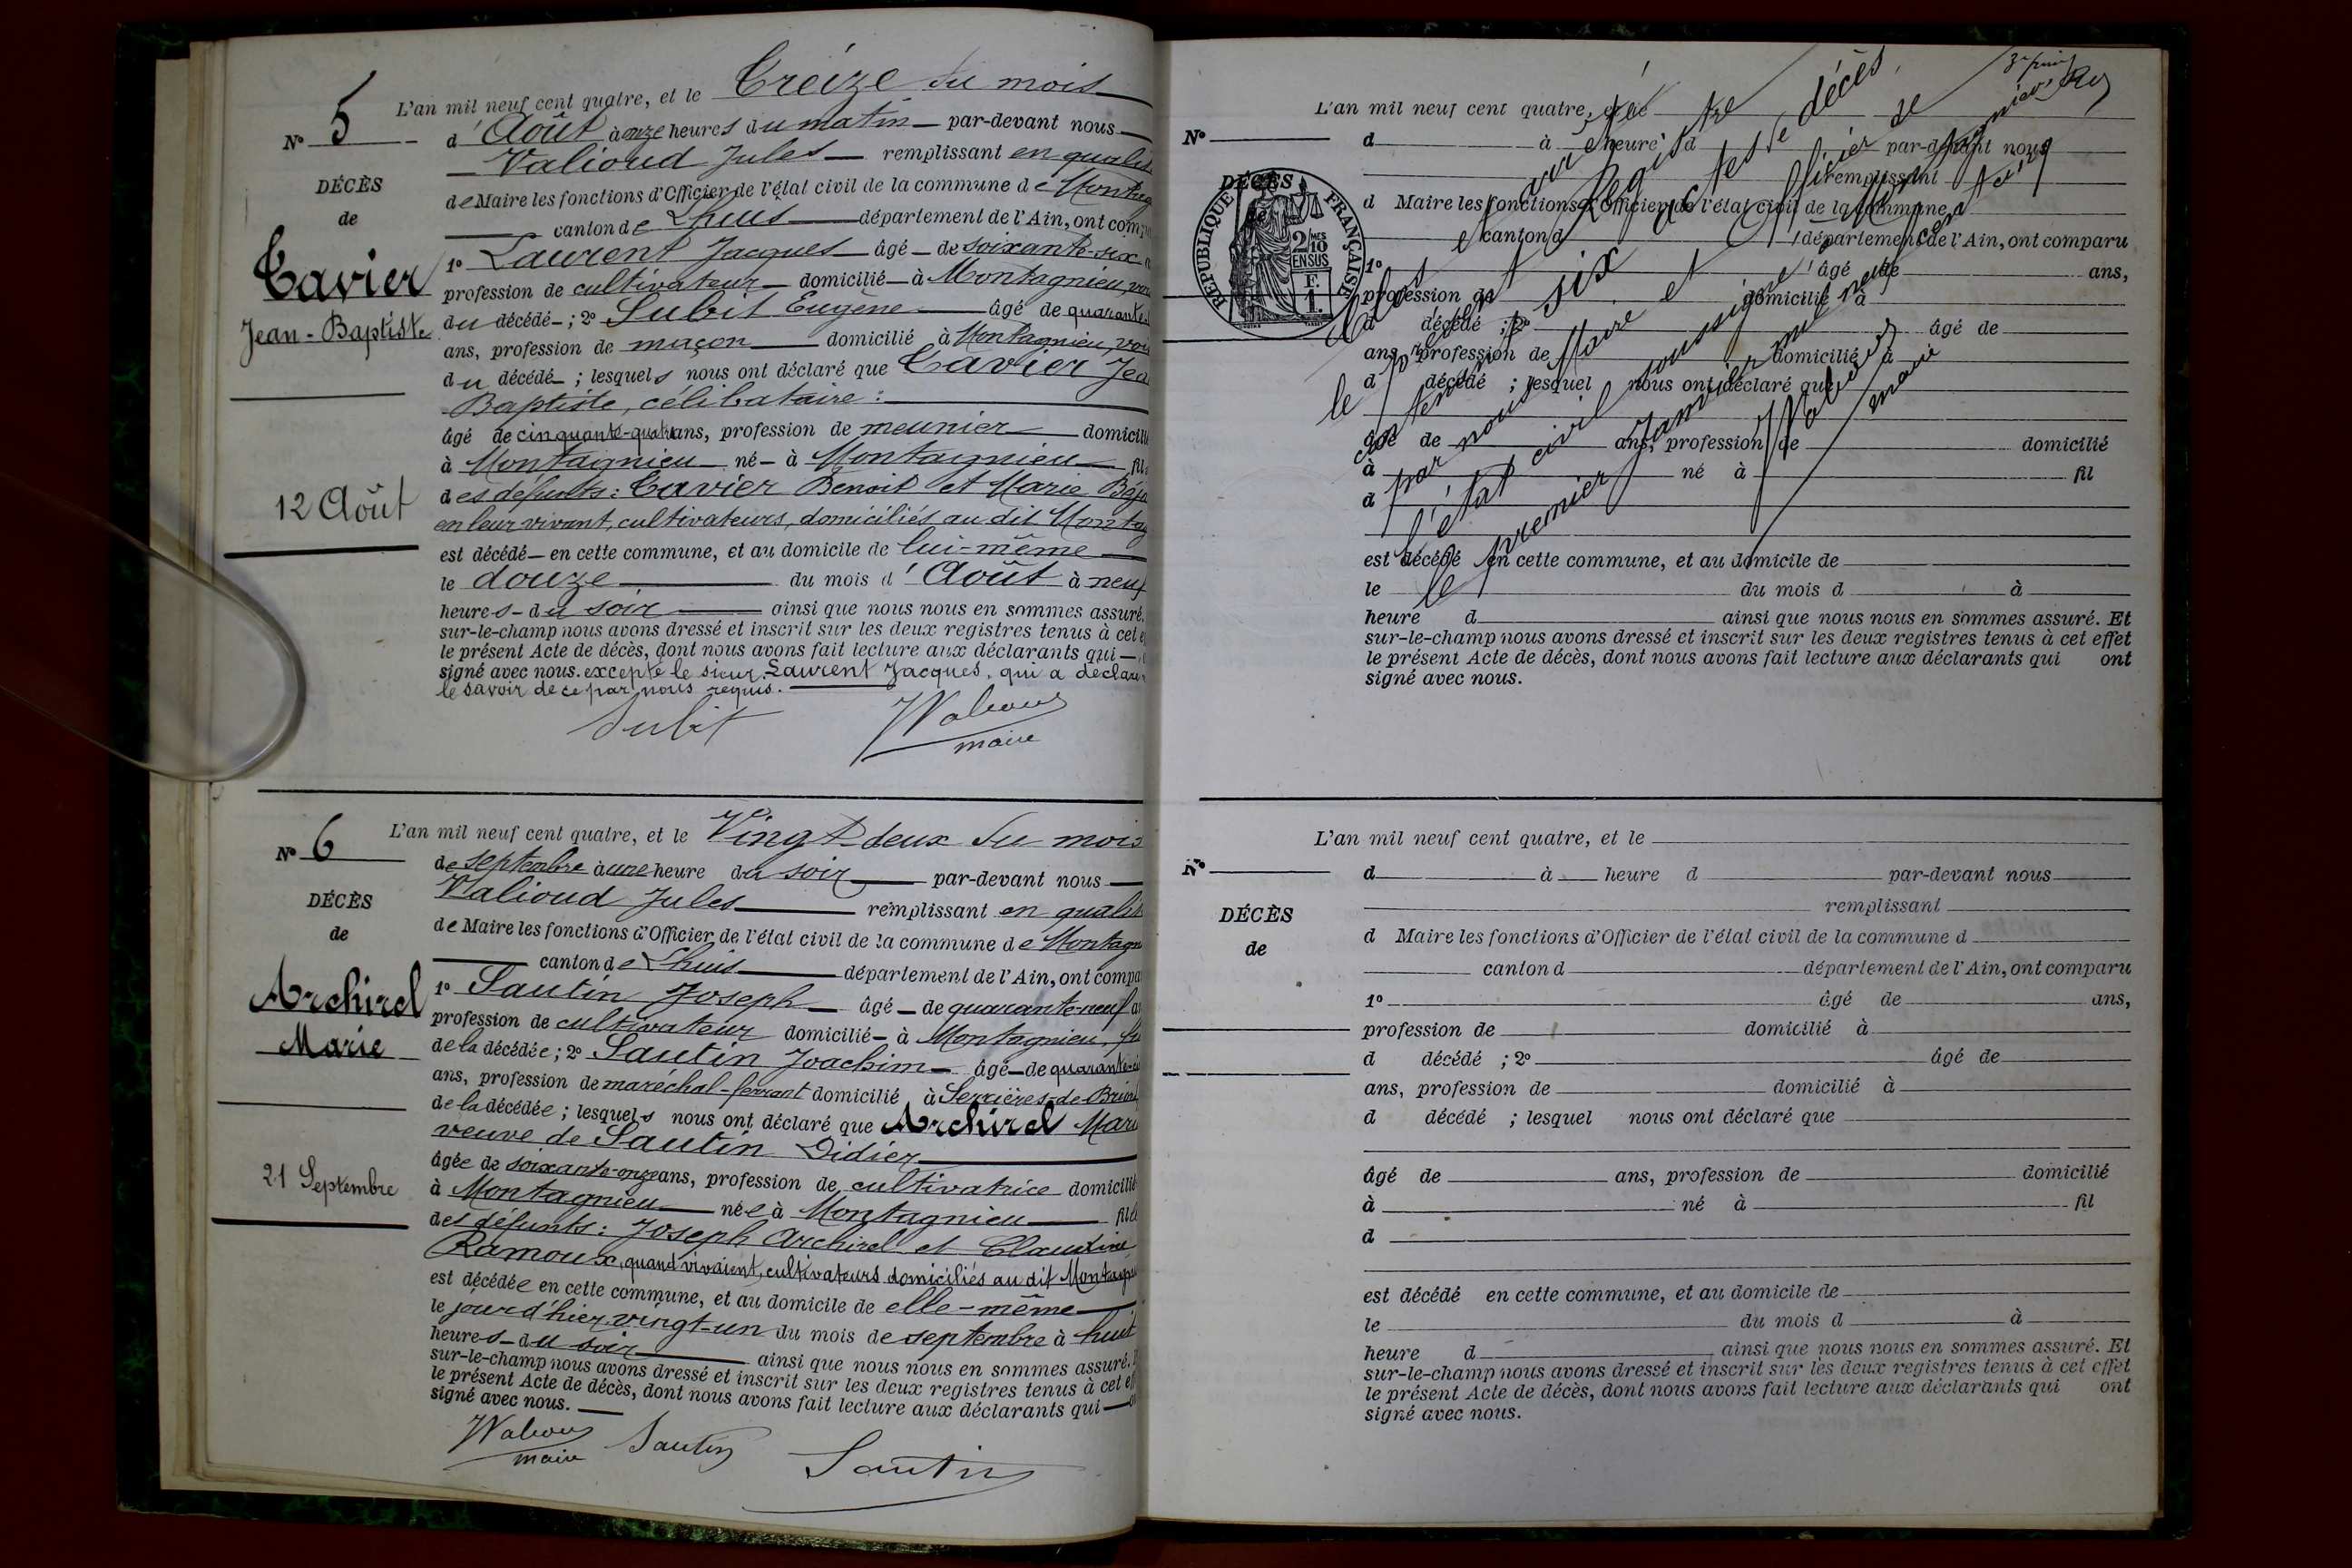 L'an mil neuf cent quatre, et le Treize du mois
N° 5
d'Août à onze heures du matin par-devant nous
Valioud Jules remplissant en qualit
DÉCÈS
de Maire les fonctions d'Officier de l'état civil de la commune de Montag
de
canton de Lhuis département de l'Ain, ont comp
Tavier
Jean-Baptiste
1° Laurent Jacques âgé de soixante-six
profession de cultivateur domicilié à Montagnieu, voi
du décédé ; 2° Subit Eugène âgé de quarante
ans, profession de maçon domicilié à Montagnieu, voi
du décédé ; lesquels nous ont déclaré que Tavier Jea
Baptiste, célibataire :
âgé de cinquante-quatre ans, profession de meunier domicili
à Montagnieu né à Montagnieu fils
12 Août
des défunts : Tavier Benoit et Marie
en leur vivant, cultivateurs, domiciliés au dit Montag
est décédé en cette commune, et au domicile de lui-même
le douze du mois d'Août à neuf
heures du soir ainsi que nous nous en sommes assuré.
sur-le-champ nous avons dressé et inscrit sur les deux registres tenus à cet e
le présent Acte de décès, dont nous avons fait lecture aux déclarants qui
signé avec nous. excepté le sieur Laurent Jacques, qui a déclaré
le savoir de ce par nous requis.
Subit Valioud
maire
L'an mil neuf cent quatre, et le Vingt-deux du mois
N° 6
de septembre à une heure du soir par-devant nous
Valioud Jules remplissant en qualit
DÉCÈS
de Maire les fonctions d'Officier de l'état civil de la commune de Montagn
de
canton de Lhuis département de l'Ain, ont compa
Archirel
Marie
1° Sautin Joseph âgé de quarante-neuf a
profession de cultivateur domicilié à Montagnieu, fi
de la décédée ; 2° Sautin Joachim âgé de quarante-
ans, profession de maréchal-ferrant domicilié à Serrières-de-Brior
de la décédée ; lesquels nous ont déclaré que Archirel Mari
veuve de Sautin Didier
âgée de soixante-onze ans, profession de cultivatrice domicilié
21 Septembre
à Montagnieu née à Montagnieu fille
des défunts : Joseph Archirel et Claudine
Ramoux, quand vivaient, cultivateurs domiciliés au dit Montagn
est décédée en cette commune, et au domicile de elle-même
le jour d'hier, vingt-un du mois de septembre à huit
heures du soir ainsi que nous nous en sommes assuré.
sur-le-champ nous avons dressé et inscrit sur les deux registres tenus à cet ef
le présent Acte de décès, dont nous avons fait lecture aux déclarants qui
signé avec nous.
Valioud Sautin Sautin
maire
L'an mil neuf cent quatre, et le
N°
d à heure d par-devant nous
remplissant
DÉCÈS
RÉPUBLIQUE FRANÇAISE
2 MES
10
EN SUS
F.
1.
d Maire les fonctions d'Officier de l'état civil de la commune
canton d département de l'Ain, ont comparu
1° âgé de ans,
profession de domicilié à
d décédé ; 2° âgé de
ans, profession de domicilié à
d décédé ; lesquel nous ont déclaré que
âgé de ans, profession de domicilié
à né à fil
d
est décédé en cette commune, et au domicile de
le du mois d à
heure d ainsi que nous nous en sommes assuré. Et
sur-le-champ nous avons dressé et inscrit sur les deux registres tenus à cet effet
le présent Acte de décès, dont nous avons fait lecture aux déclarants qui ont
signé avec nous.
Clos et arrêté
le présent Registre
contenant six actes de décès,
par nous Maire et Officier de
l'état civil soussigné, à Montagnieu,
le premier Janvier mil neuf cent cinq
Valioud
maire
L'an mil neuf cent quatre, et le
N°
d à heure d par-devant nous
remplissant
DÉCÈS
d Maire les fonctions d'Officier de l'état civil de la commune d
de
canton d département de l'Ain, ont comparu
1° âgé de ans,
profession de domicilié à
d décédé ; 2° âgé de
ans, profession de domicilié à
d décédé ; lesquel nous ont déclaré que
âgé de ans, profession de domicilié
à né à fil
d
est décédé en cette commune, et au domicile de
le du mois d à
heure d ainsi que nous nous en sommes assuré. Et
sur-le-champ nous avons dressé et inscrit sur les deux registres tenus à cet effet
le présent Acte de décès, dont nous avons fait lecture aux déclarants qui ont
signé avec nous.